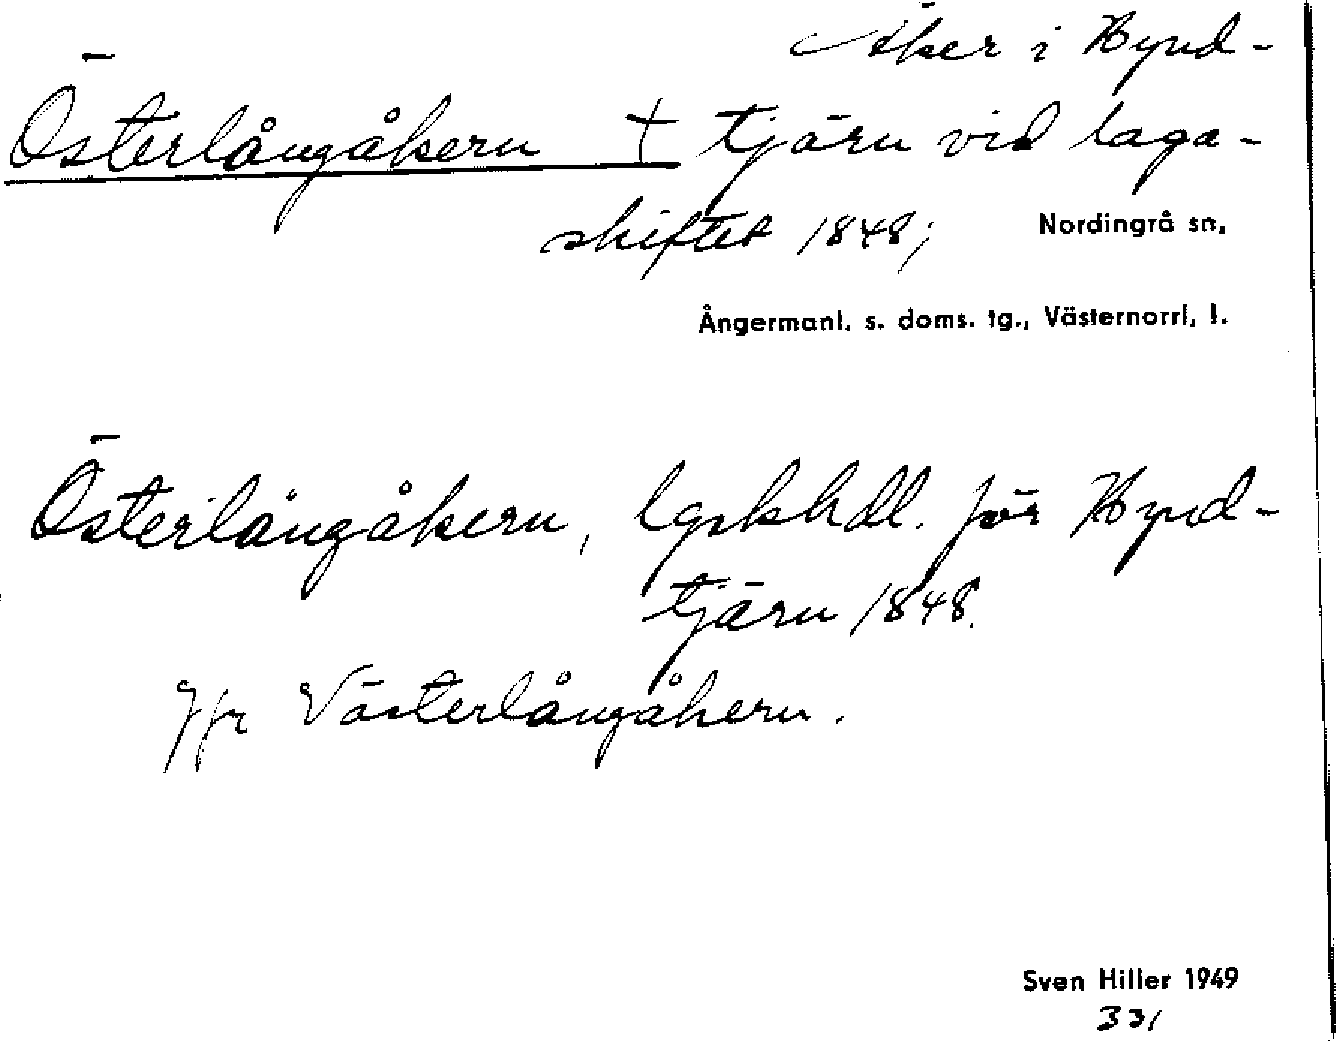 Åker i Hynd-
Österlångåkern † tjärn vid laga-
skiftet 1848;
Nordingrå sn,
Ångermanl. s. doms. tg., Västernorrl. l.
Österlångåkern, lgskhdl. för Hynd-
tjärn 1848.
Jfr Västerlångåkern.
Sven Hiller 1949
331